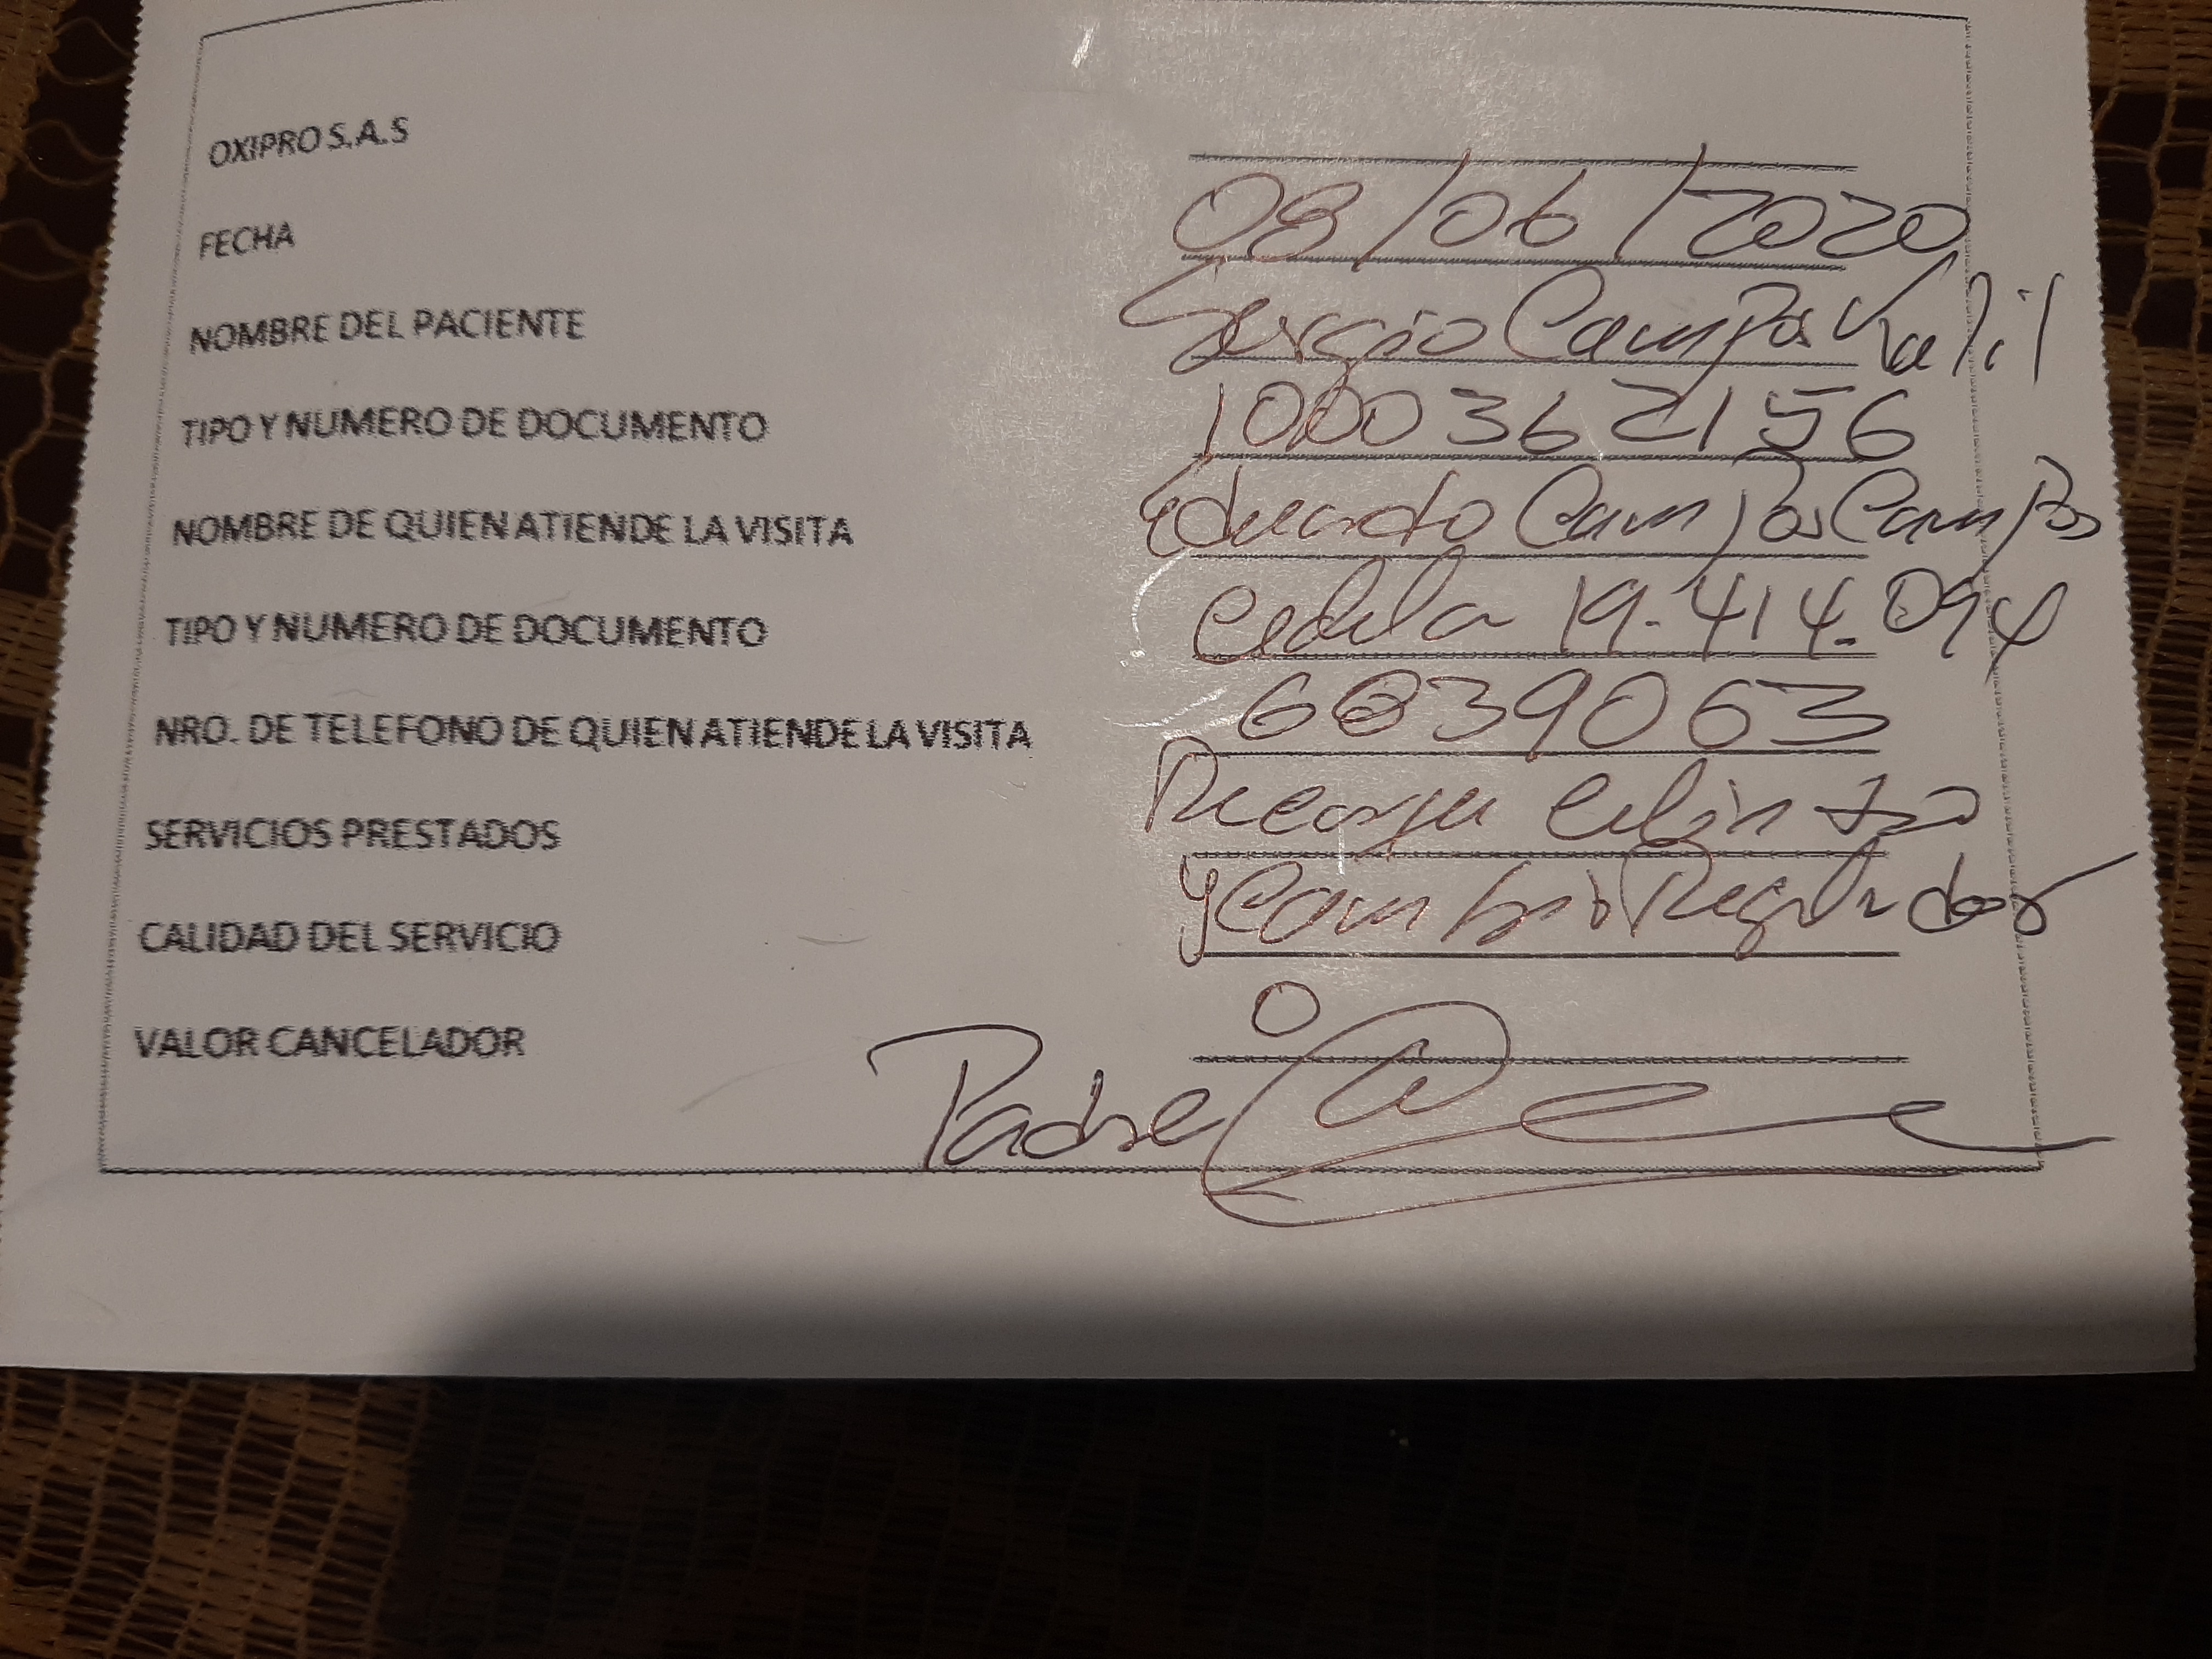 OXIPRO S.A.S
FECHA 08/06/2020
NOMBRE DEL PACIENTE Sergio Campos Kalil
TIPO Y NUMERO DE DOCUMENTO 1000362156
NOMBRE DE QUIEN ATIENDE LA VISITA Eduardo Campos Campos
TIPO Y NUMERO DE DOCUMENTO Cedula 19.414.094
NRO. DE TELEFONO DE QUIEN ATIENDE LA VISITA 6839063
SERVICIOS PRESTADOS Recarga Cilindro
CALIDAD DEL SERVICIO y Cambio Regulador
VALOR CANCELADOR 0
Padre